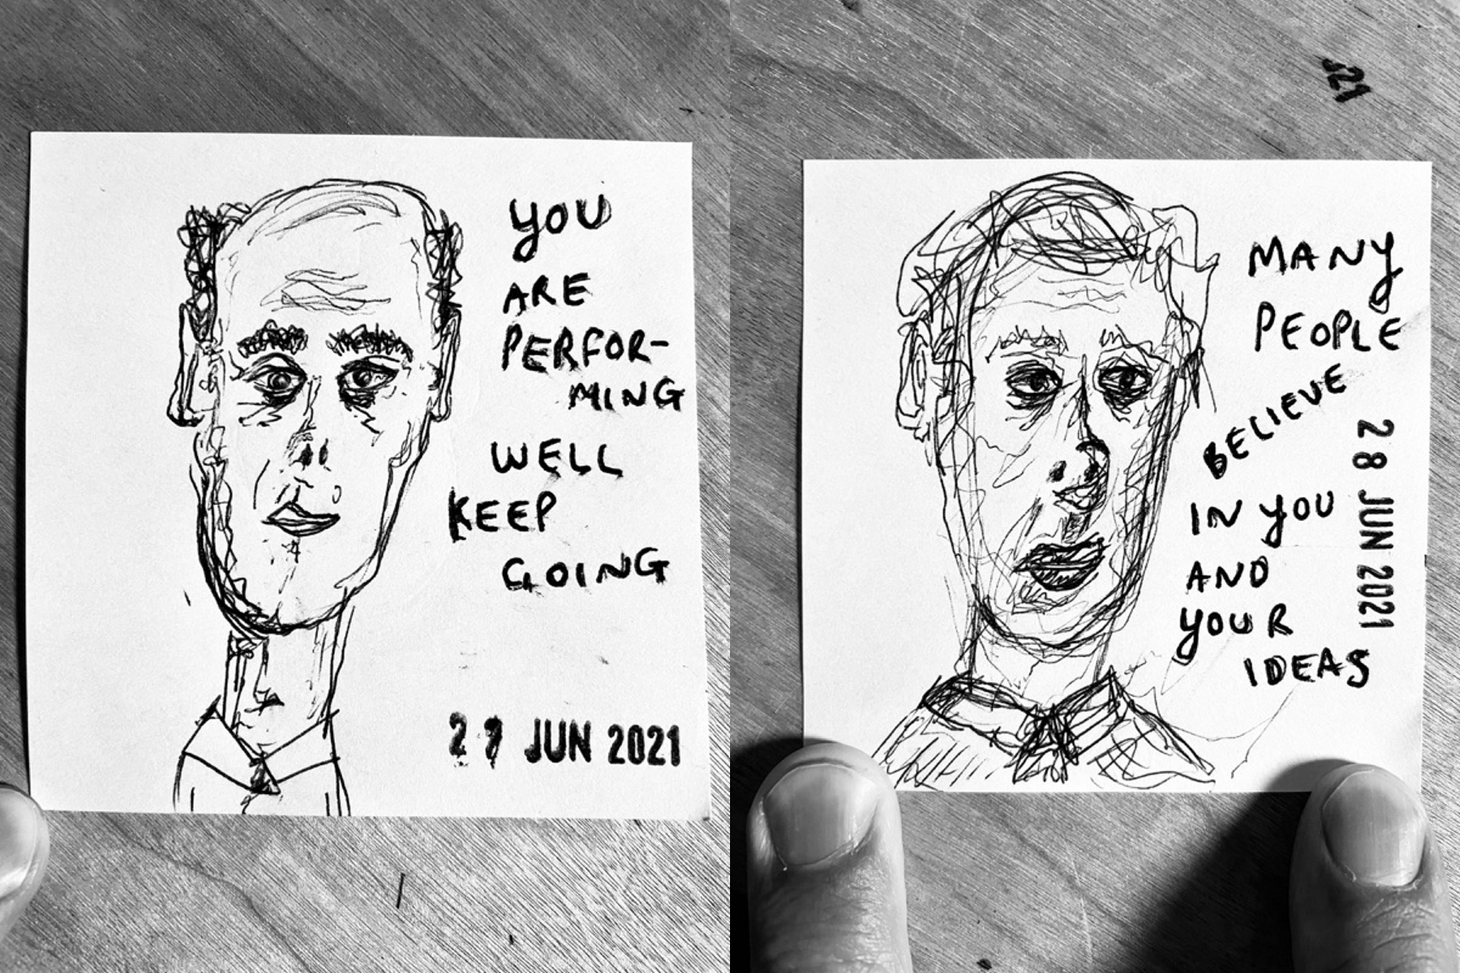 YOU
ARE
PERFOR-
MING
WELL
KEEP
GOING
27 JUN 2021
MANY
PEOPLE
BELIEVE
IN YOU
AND
YOUR
IDEAS
28 JUN 2021
J21